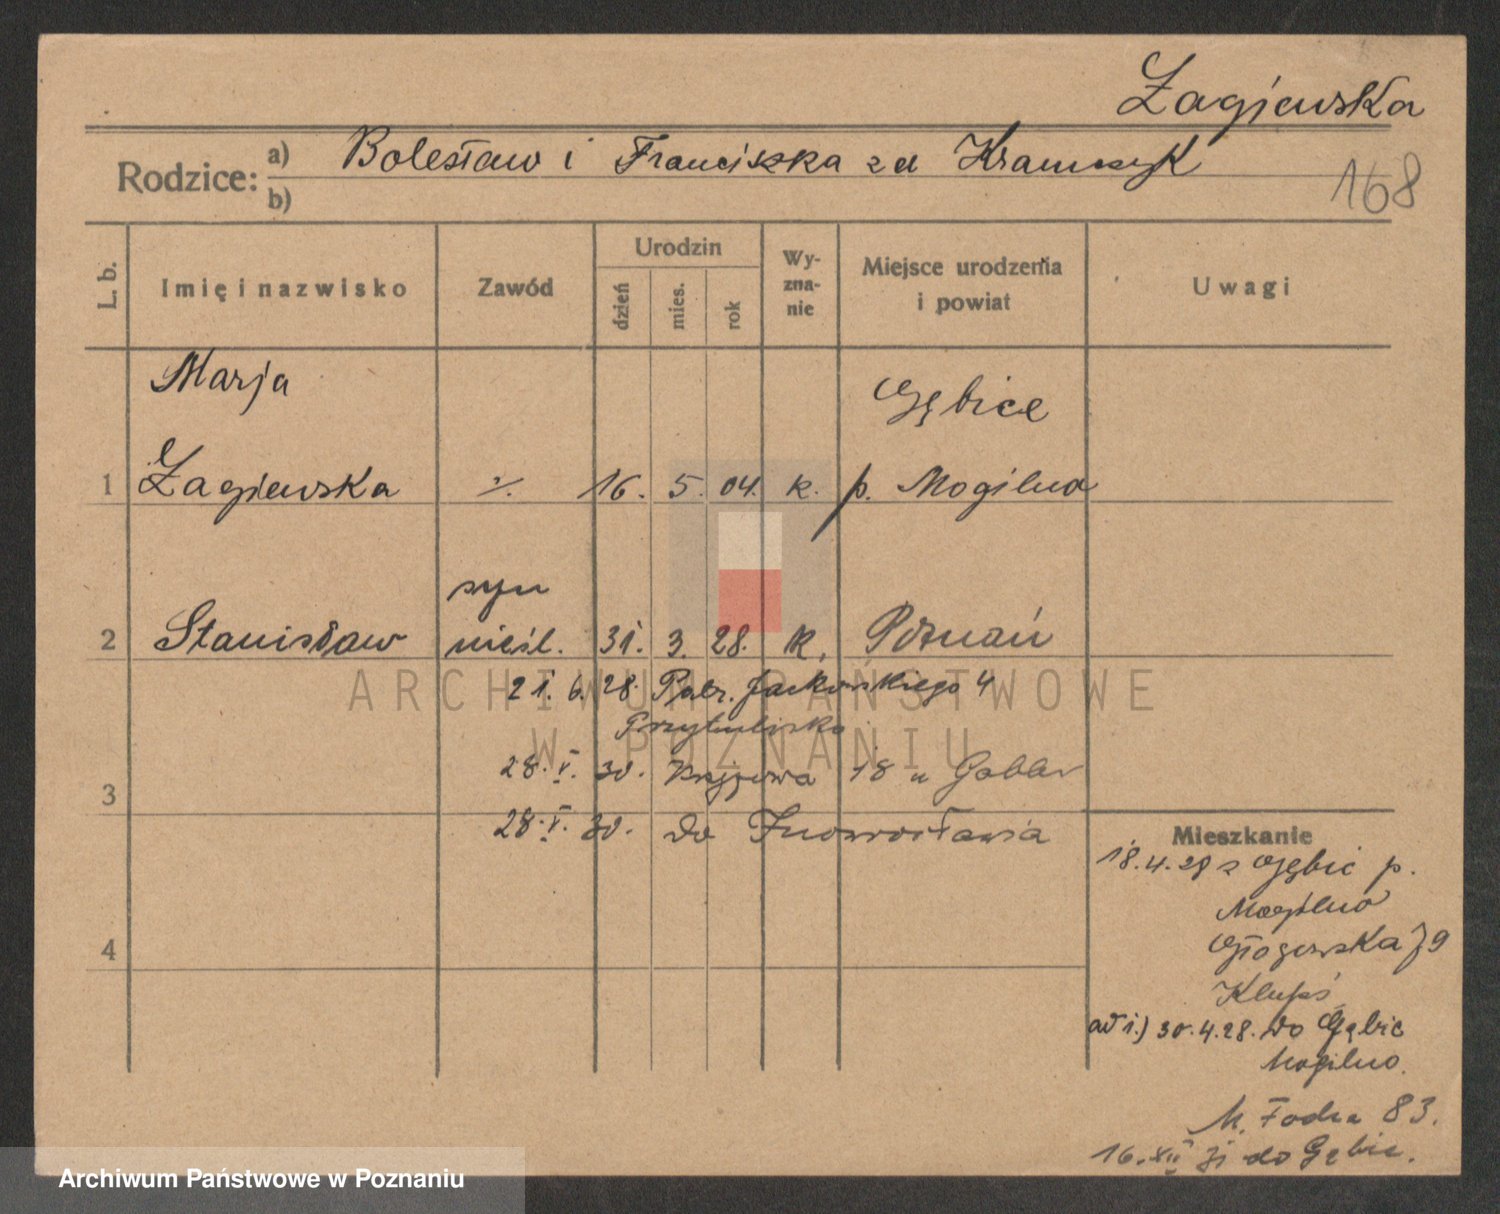 Żagiewska
Rodzice: a) Bolesław i Franciszka zd Kramczyk
b)
168
L. b.
Imię i nazwisko
Zawód
Urodzin
dzień
mies.
rok
Wy-
zna-
nie
Miejsce urodzenia
i powiat
Uwagi
Marja
Gębice
1 Żagiewska ./. 16. 5. 04. k. p. Mogilno
syn
2 Stanisław nieśl. 31. 3. 28. k. Poznań
21. 6. 28. Jackowskiego 4
Przytulisko
28. V. 30. 18 u Gabler
3
28. V. 30. do Inowrocławia
Mieszkanie
18.4.28 z Gębic p.
Mogilno
Głogowska 79
Klupś
4
ad 1.) 30.4.28. do Gębic
Mogilno.
M. 83.
16. XII 31 do Gębic.
ARCHIWUM PAŃSTWOWE
W POZNANIU
Archiwum Państwowe w Poznaniu